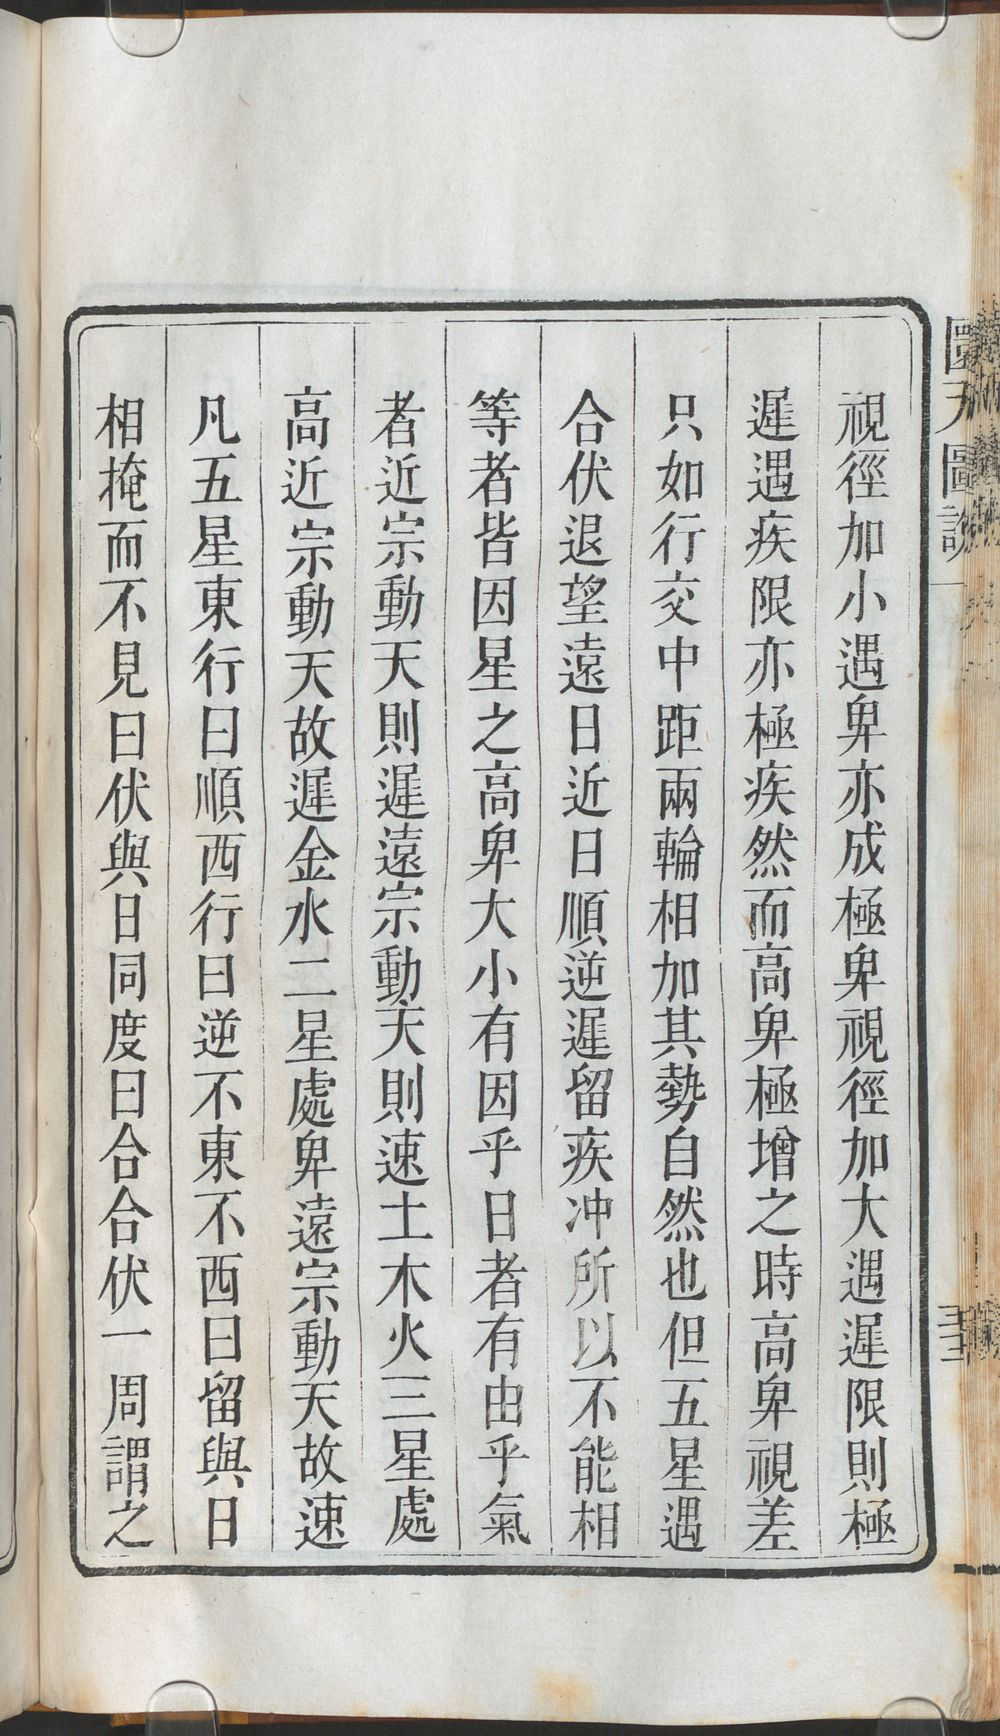 視徑加小遇卑亦成極卑視徑加大遇遲限則極
遲遇疾限亦極疾然而高卑極增之時高卑視差
只如行交中距兩輪相加其勢自然也但五星遇
合伏退望遠日近日順逆遲留疾冲所以不能相
等者皆因星之高卑大小有因乎日者有由乎氣
者近宗動天則遲遠宗動天則速土木火三星處
高近宗動天故遲金水二星處卑遠宗動天故速
凡五星東行曰順西行曰逆不東不西曰留與日
相掩而不見曰伏與日同度曰合合伏一周謂之
圜天圖說